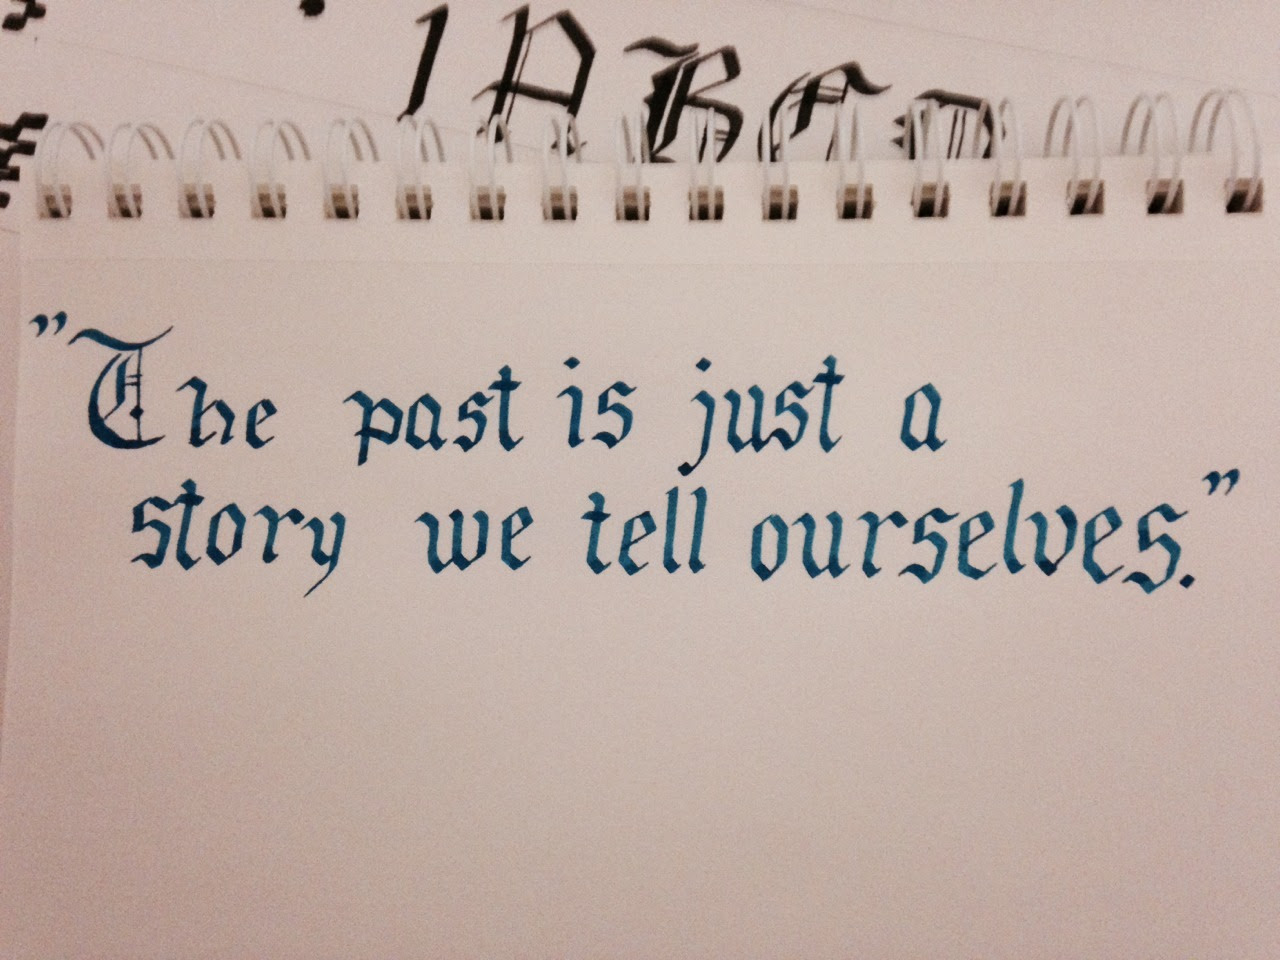 1 A B C D
”The past is just a
story we tell ourselves.”